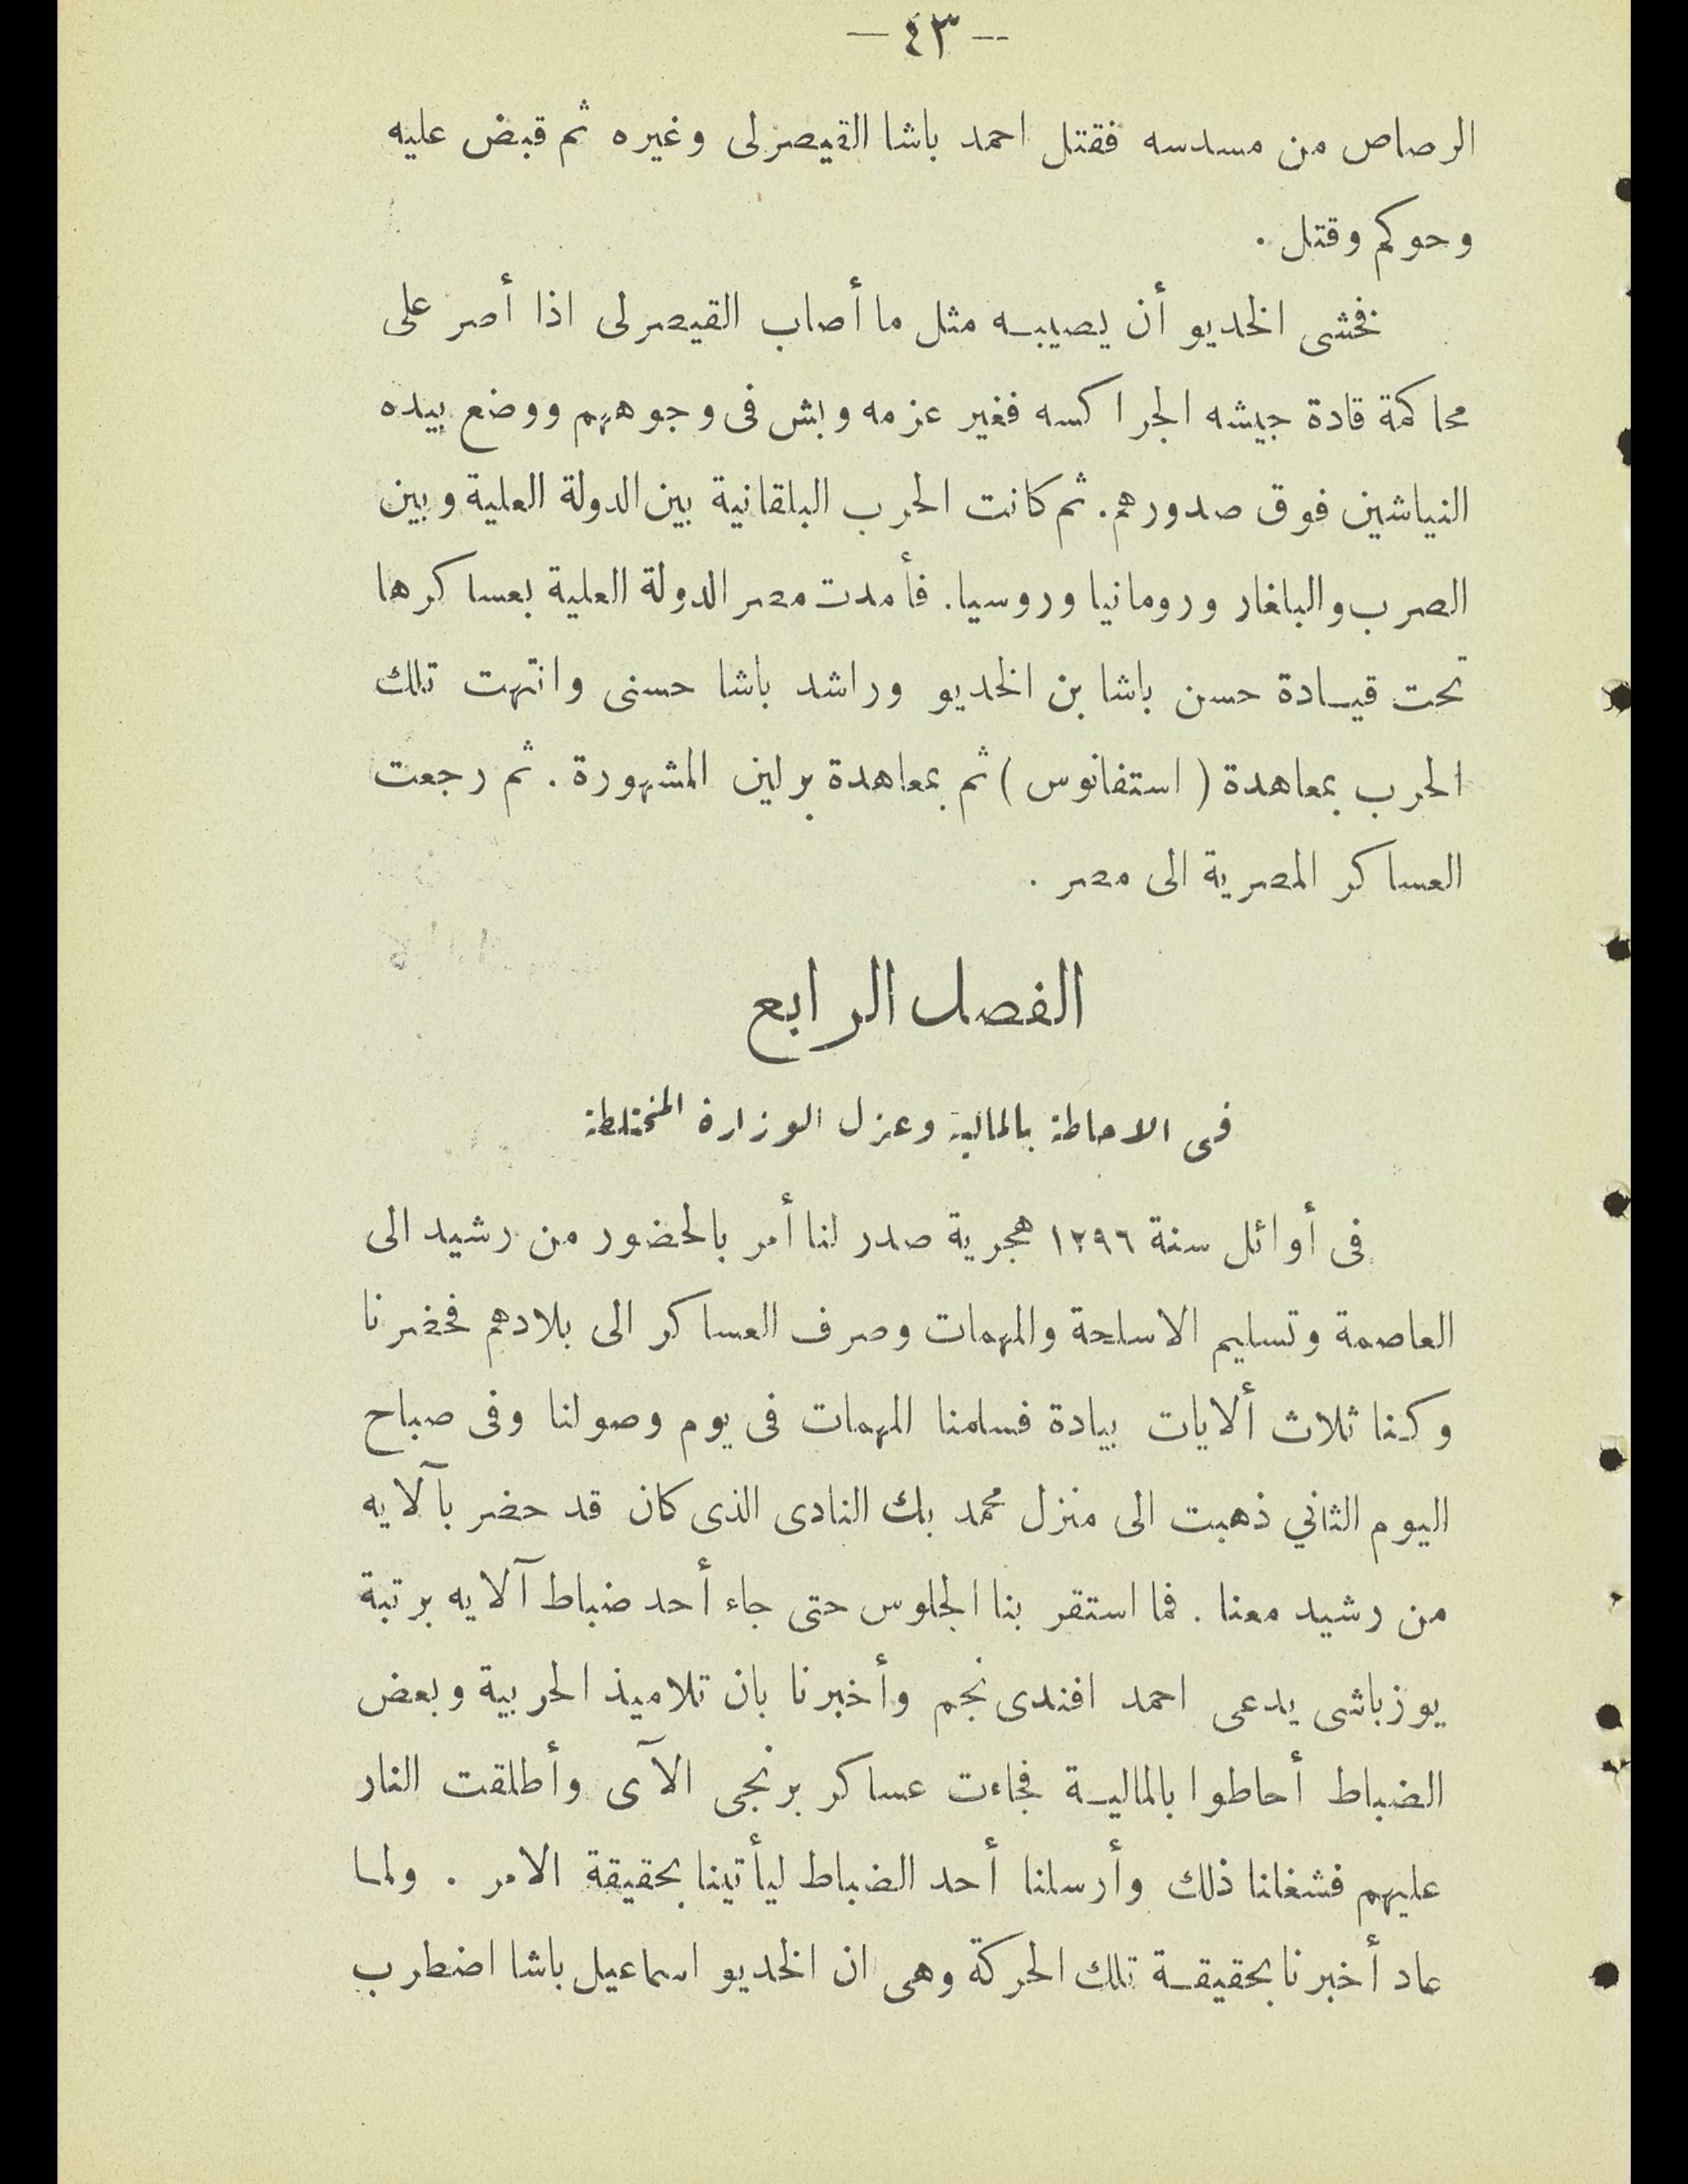 — ٤٣ —
الرصاص من مسدسه فقتل احمد باشا القيصرلى وغيره ثم قبض عليه
وحوكم وقتل .
فخشى الخديو أن يصيبه مثل ما أصاب القيصرلى اذا أصر على
محاكمة قادة جيشه الجراكسه فغير عزمه وبش فى وجوههم ووضع بيده
النياشين فوق صدورهم. ثم كانت الحرب البلقانية بين الدولة العلية وبين
الصرب والبلغار ورومانيا وروسيا. فأمدت مصر الدولة العلية بعساكرها
تحت قيادة حسن باشا بن الخديو وراشد باشا حسنى وانتهت تلك
الحرب بمعاهدة ( استفانوس ) ثم بمعاهدة برلين المشهورة . ثم رجعت
العساكر المصرية الى مصر .
الفصل الرابع
فى الاحاطة بالمالية وعزل الوزارة المختلطة
فى أوائل سنة ١٢٩٦ هجرية صدر لنا أمر بالحضور من رشيد الى
العاصمة وتسليم الاسلحة والمهمات وصرف العساكر الى بلادهم فحضرنا
وكنا ثلاث ألايات بيادة فسلمنا المهمات فى يوم وصولنا وفى صباح
اليوم الثاني ذهبت الى منزل محمد بك النادى الذى كان قد حضر بآلايه
من رشيد معنا . فما استقر بنا الجلوس حتى جاء أحد ضباط آلايه برتبة
يوزباشى يدعى احمد افندى نجم وأخبرنا بان تلاميذ الحربية وبعض
الضباط أحاطوا بالمالية فجاءت عساكر برنجى الآى وأطلقت النار
عليهم فشغلنا ذلك وأرسلنا أحد الضباط ليأتينا بحقيقة الامر . ولما
عاد أخبرنا بحقيقة تلك الحركة وهى ان الخديو اسماعيل باشا اضطرب